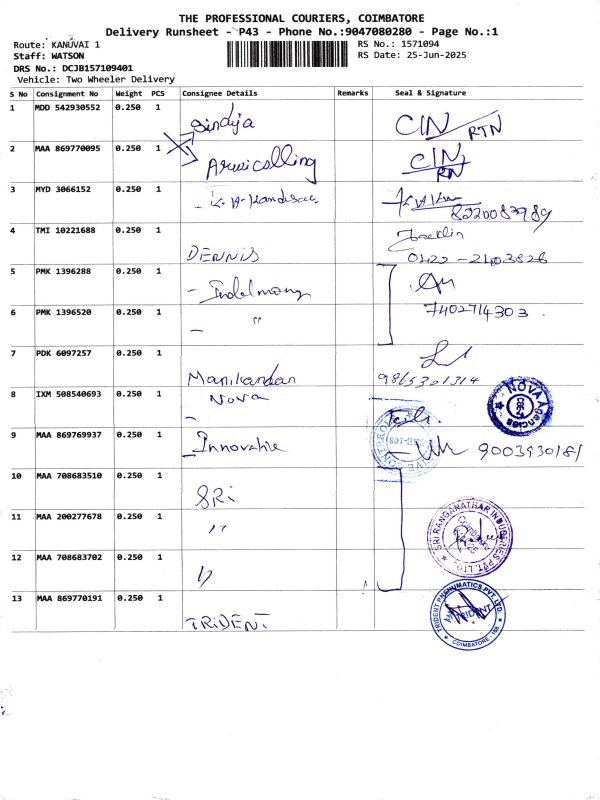 THE PROFESSIONAL COURIERS, COIMBATORE
Delivery Runsheet - P43 - Phone No.:9047080280 - Page No.:1
Route: KANUVAI 1
Staff: WATSON
DRS No.: DCJB157109401
Vehicle: Two Wheeler Delivery
RS No.: 1571094
RS Date: 25-Jun-2025
S No Consignment No Weight PCS Consignee Details Remarks Seal & Signature
1 MDD 542930552 0.250 1 Sindija CIN RTN
2 MAA 869770095 0.250 1 CIN RN
3 MYD 3066152 0.250 1 8220087989
4 TMI 10221688 0.250 1 DENNIS 0422-2403826
5 PMK 1396288 0.250 1
6 PMK 1396520 0.250 1 — " 7402714303
7 PDK 6097257 0.250 1 Manikandan 9865301314
8 IXM 508540693 0.250 1 Nova NOVA Agencies
9 MAA 869769937 0.250 1 9003930181
10 MAA 708683510 0.250 1 SRi
11 MAA 200277678 0.250 1 " SRI RANGANATHAR INDUSTRIES PVT. LTD.
12 MAA 708683702 0.250 1 "
13 MAA 869770191 0.250 1 TRIDENT TRIDENT PNEUMATICS PVT. LTD. COIMBATORE